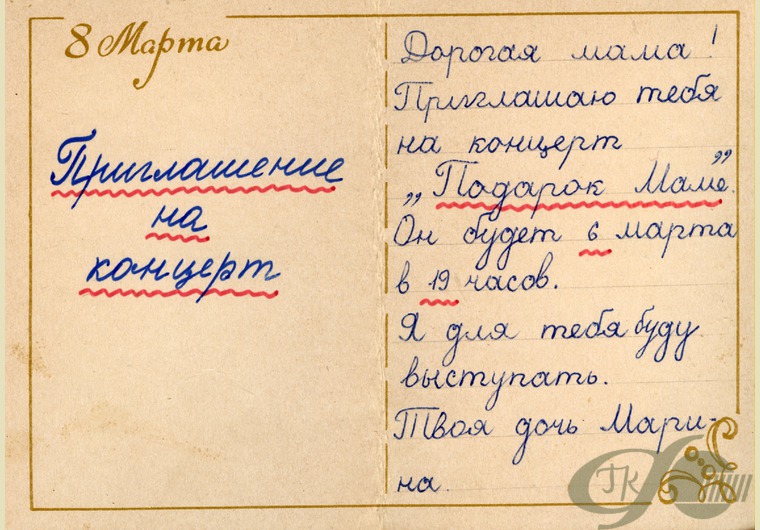 8 Марта
Приглашение
на
концерт
Дорогая мама!
Приглашаю тебя
на концерт
„Подарок Маме”.
Он будет 6 марта
в 19 часов.
Я для тебя буду
выступать.
Твоя дочь Мари-
на.
ГК